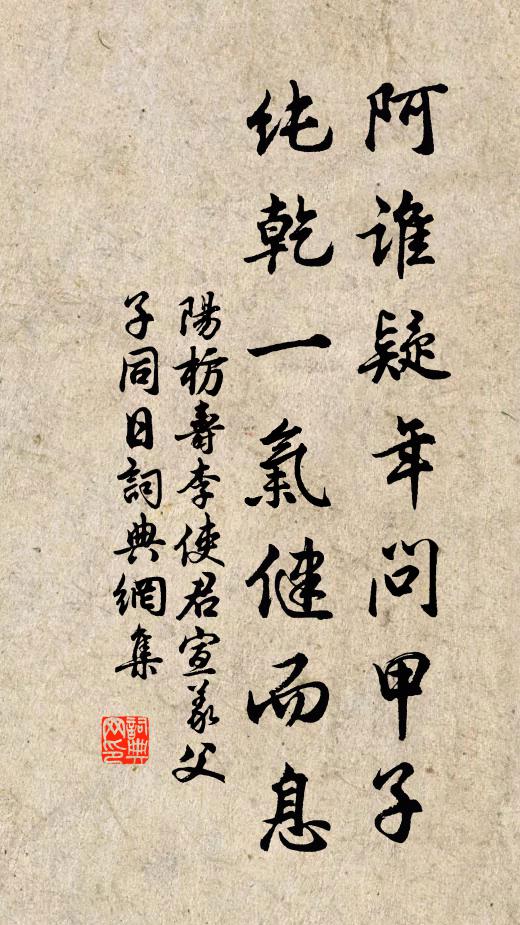 阿誰疑年問甲子
純乾一氣健而息
陽枋壽李使君宣義父
子同日詞典網集
詞典网印